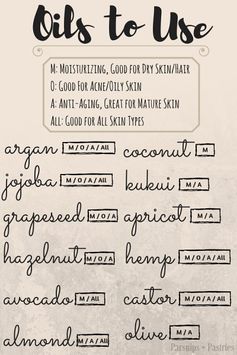 Oils to Use
M: Moisturizing, Good for Dry Skin/Hair
O: Good For Acne/Oily Skin
A: Anti-Aging, Great for Mature Skin
ALL: Good for All Skin Types
argan M/O/A/All
coconut M
jojoba M/O/A/All
kukui M/A
grapeseed M/O/A
apricot M/A
hazelnut M/O/A
hemp M/A/All
avocado M/All
castor M/A/All
almond M/A/All
olive M/A
Parsnips + Pastries